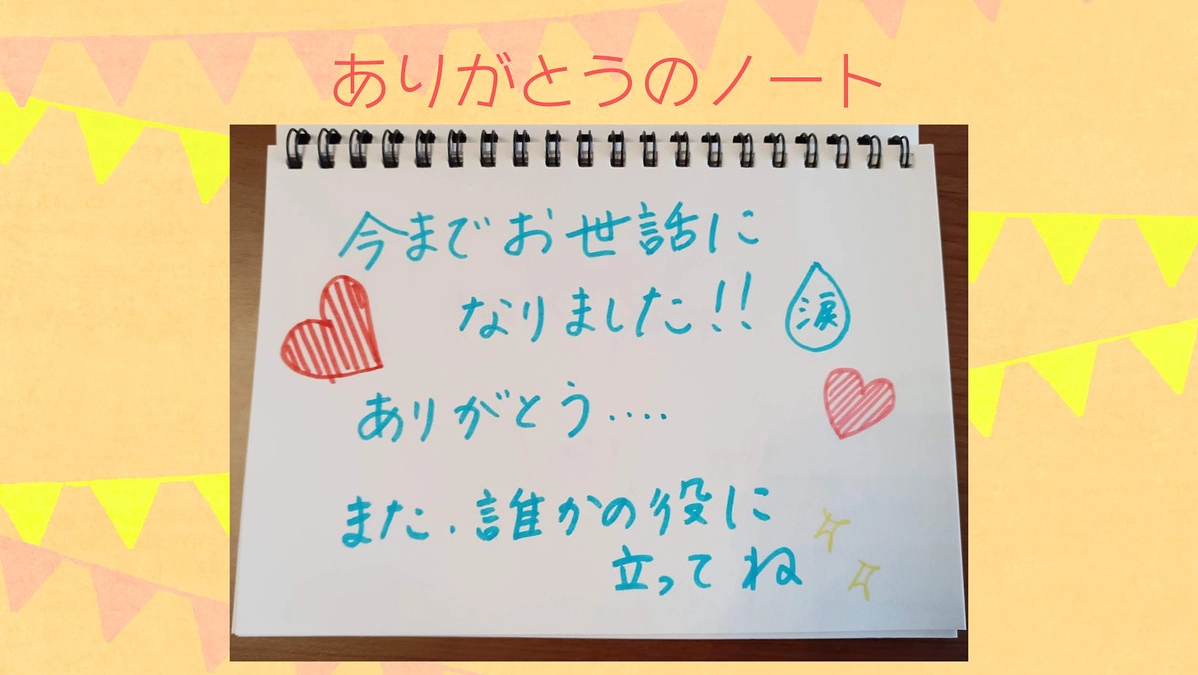 ありがとうのノート
今までお世話に
なりました!!
涙
ありがとう....
また、誰かの役に
立ってね